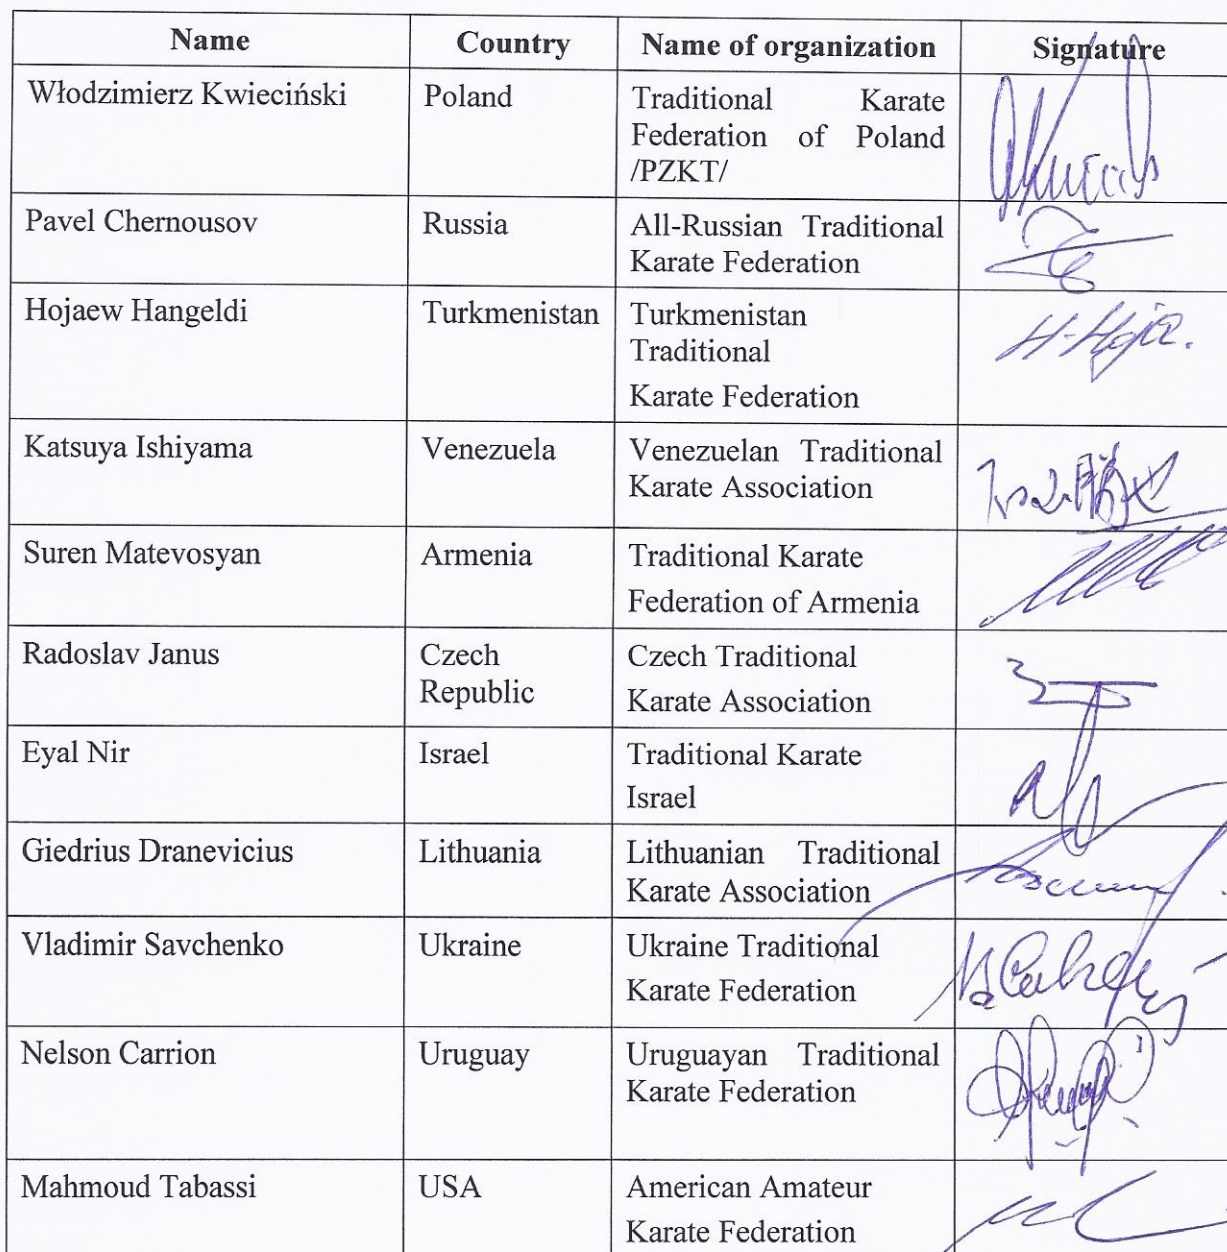 Name Country Name of organization Signature
Włodzimierz Kwieciński Poland Traditional Karate
Federation of Poland
/PZKT/
Pavel Chernousov Russia All-Russian Traditional
Karate Federation
Hojaew Hangeldi Turkmenistan Turkmenistan
Traditional
Karate Federation
H-Hoja.
Katsuya Ishiyama Venezuela Venezuelan Traditional
Karate Association
Suren Matevosyan Armenia Traditional Karate
Federation of Armenia
Radoslav Janus Czech Czech Traditional
Republic Karate Association
Eyal Nir Israel Traditional Karate
Israel
Giedrius Dranevicius Lithuania Lithuanian Traditional
Karate Association
Vladimir Savchenko Ukraine Ukraine Traditional
Karate Federation
Nelson Carrion Uruguay Uruguayan Traditional
Karate Federation
Mahmoud Tabassi USA American Amateur
Karate Federation